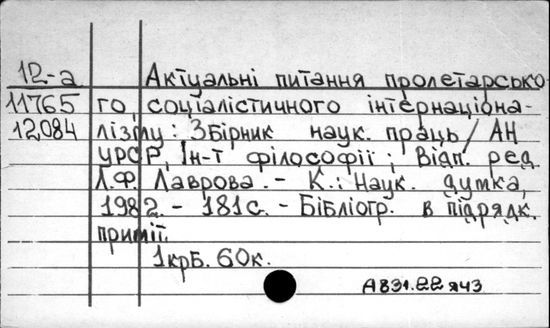 12-а Актуальні питання пролетарсько-
11765 го, соціалістичного інтернаціона-
12084 лізму: Збірник наук. праць / АН
УРСР, Ін-т філософії; Відп. ред.
Л.Ф. Лаврова. - К.: Наук. думка,
1982. - 181с. - Бібліогр. в підрядк.
приміт.
1крб. 60к.
А831.22 яч3